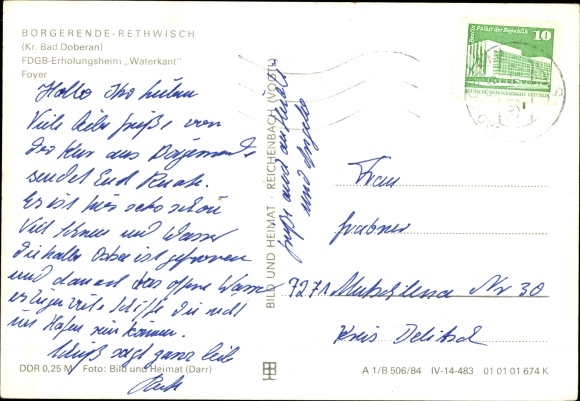 BÖRGERENDE-RETHWISCH
(Kr. Bad Doberan)
FDGB-Erholungsheim „Waterkant"
Foyer
Hallo Ihr Lieben
Viele liebe Grüße von
der Kur aus Börgerende
sendet Euch Ruth.
Es ist hier sehr schön
Viel Schnee und Wasser
die halbe Ostsee ist gefroren
und danach das offene Wasser
es liegen viele Schiffe die nicht
in's Hafen rein können.
sagt ganz lieb
Ruth
Grüße auch an
und Angela
DDR 0,25 M Foto: Bild und Heimat (Darr)
BILD UND HEIMAT · REICHENBACH (VOGTL)
Berlin, Palast der Republik
10
DEUTSCHE DEMOKRATISCHE REPUBLIK
Frau
Grabner
7271 Nr 30
Kreis Delitzsch
A 1/B 506/84 IV-14-483 01 01 01 674 K